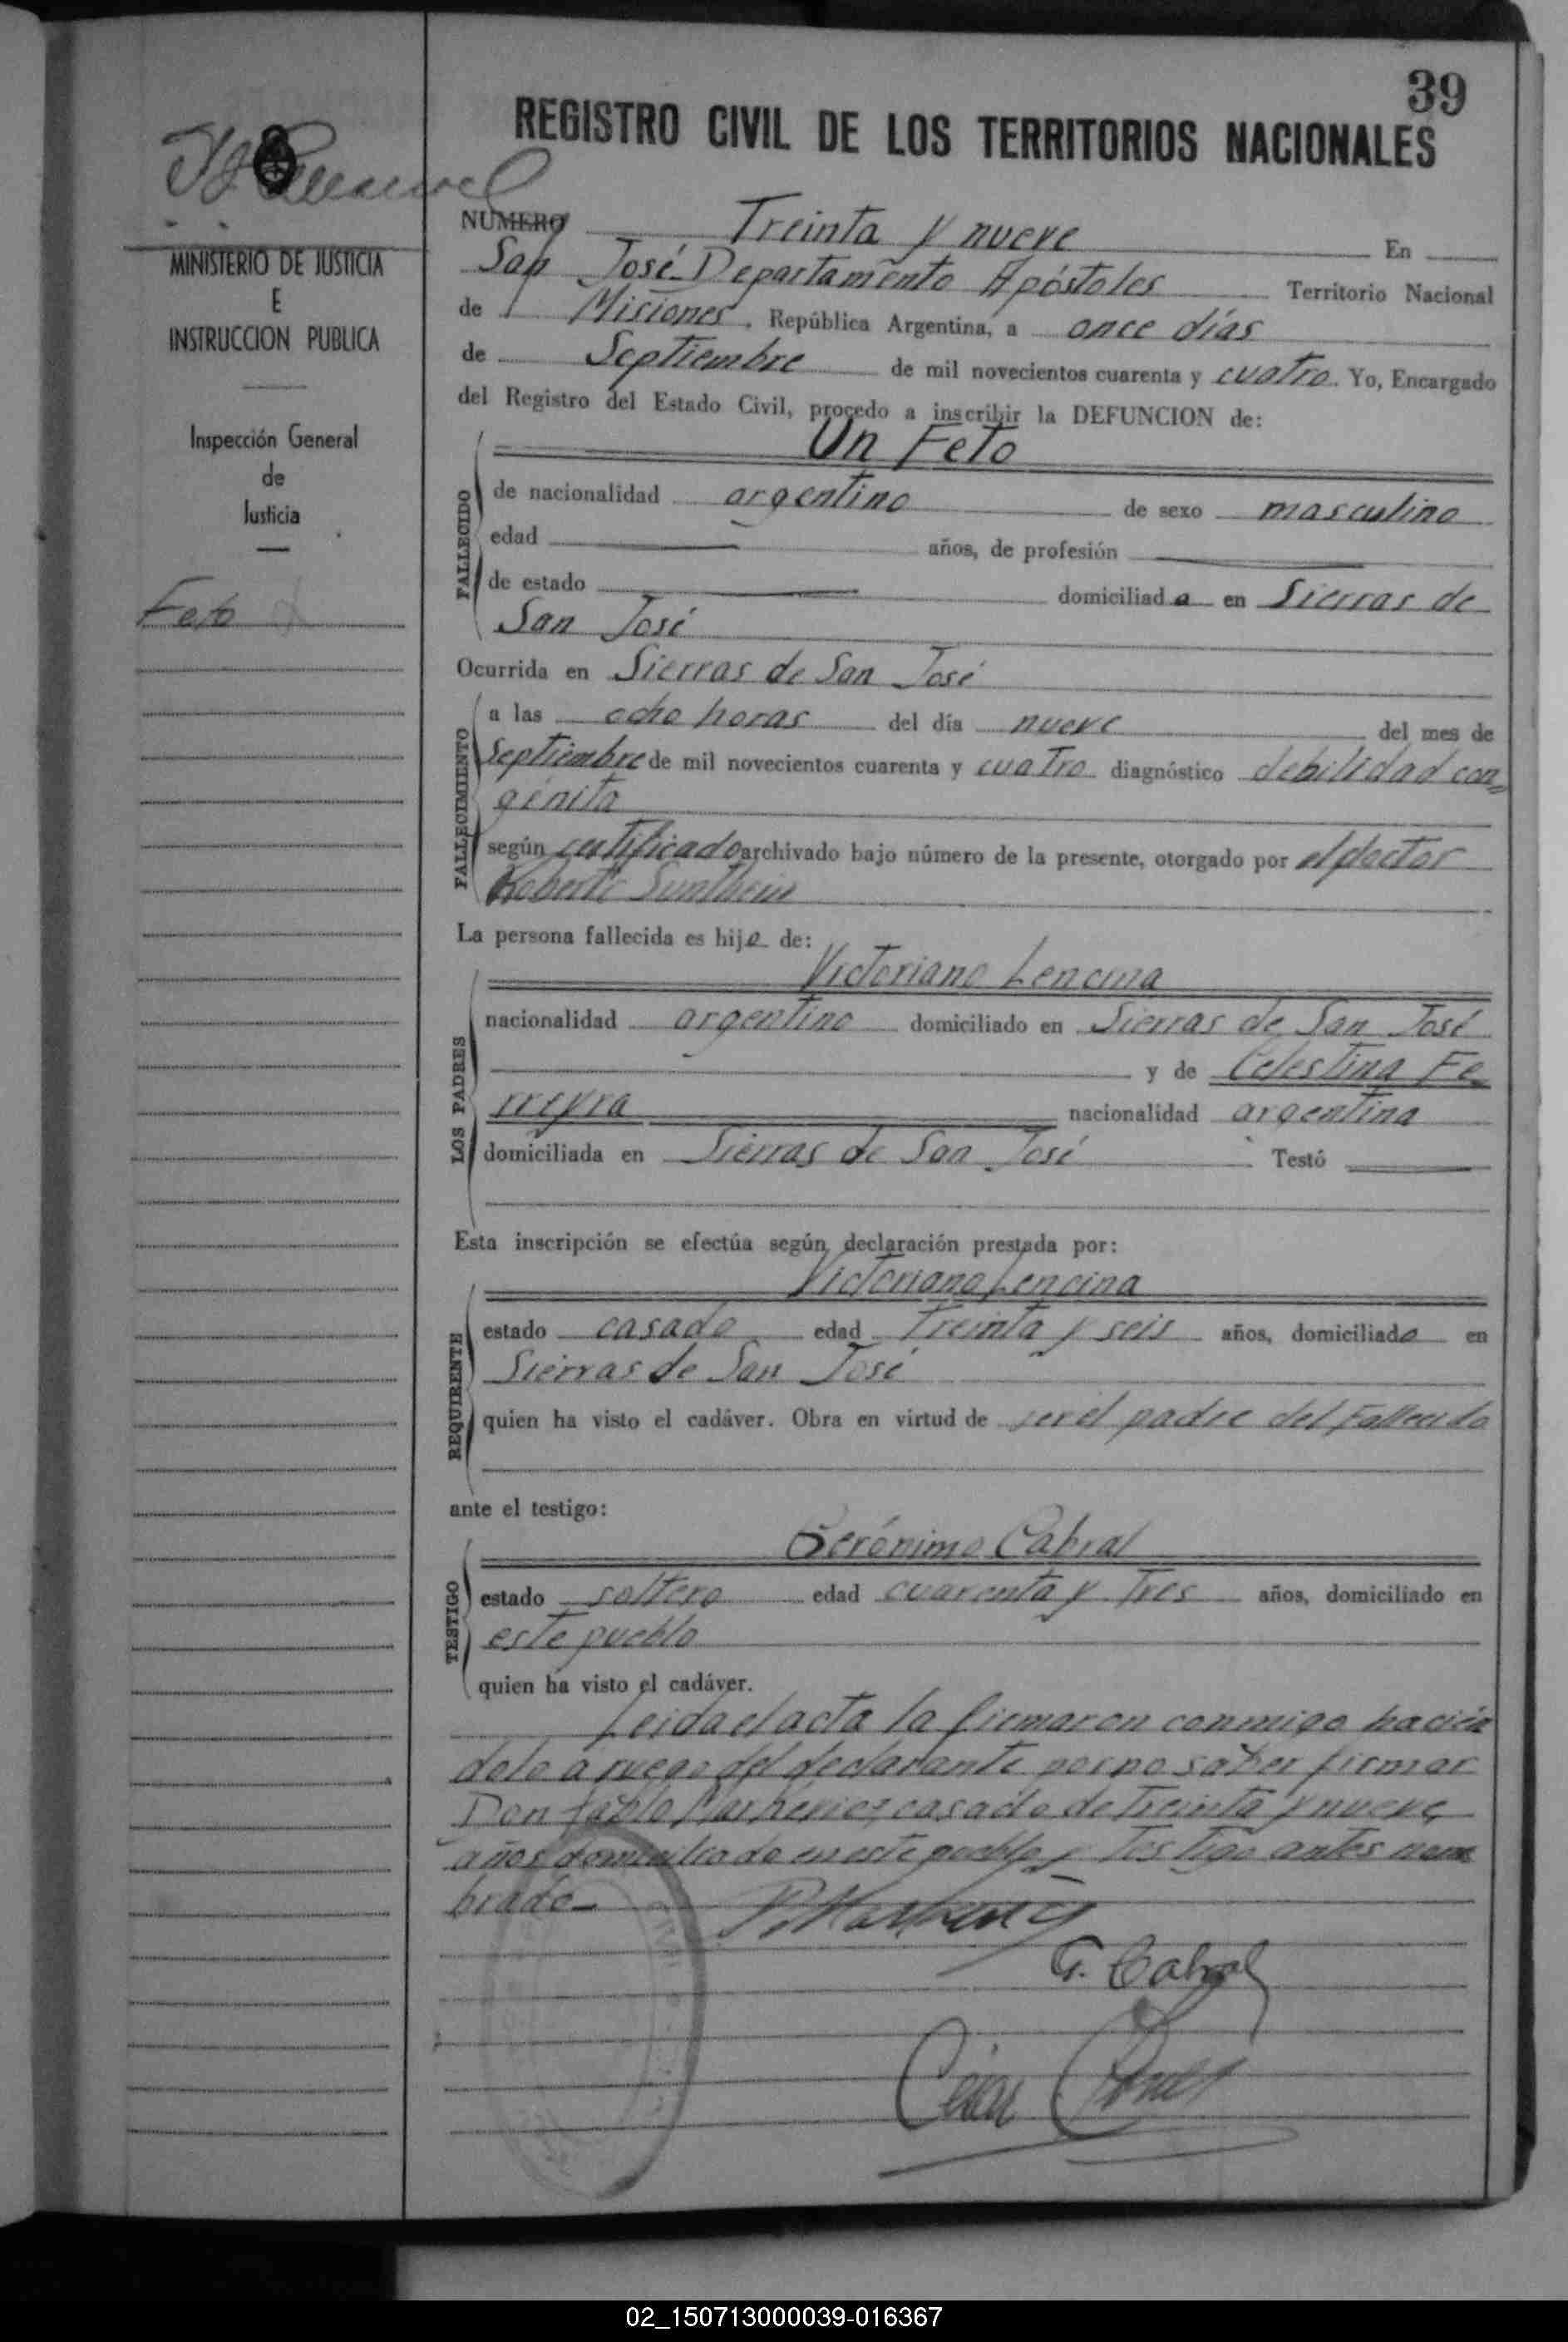 39
REGISTRO CIVIL DE LOS TERRITORIOS NACIONALES
MINISTERIO DE JUSTICIA
E
INSTRUCCION PUBLICA
Inspección General
de
Justicia
Feto
NUMERO Treinta y nueve En
San José Departamento Apóstoles Territorio Nacional
de Misiones, República Argentina, a once días
de Septiembre de mil novecientos cuarenta y cuatro. Yo, Encargado
del Registro del Estado Civil, procedo a inscribir la DEFUNCION de:
Un Feto
FALLECIDO
de nacionalidad argentino de sexo masculino
edad años, de profesión
de estado domiciliado en Sierras de
San José
Ocurrida en Sierras de San José
FALLECIMIENTO
a las ocho horas del día nueve del mes de
Septiembre de mil novecientos cuarenta y cuatro diagnóstico debilidad con=
génita
según certificado archivado bajo número de la presente, otorgado por el doctor
Roberto
La persona fallecida es hijo de:
Victoriano Lencina
LOS PADRES
nacionalidad argentino domiciliado en Sierras de San José
y de Celestina Fe
rreyra nacionalidad argentina
domiciliada en Sierras de San José Testó
Esta inscripción se efectúa según declaración prestada por:
Victoriano Lencina
REQUIRENTE
estado casado edad Treinta y seis años, domiciliado en
Sierras de San José
quien ha visto el cadáver. Obra en virtud de ser el padre del Fallecido
ante el testigo:
Gerónimo Cabral
TESTIGO
estado soltero edad cuarenta y Tres años, domiciliado en
este pueblo
quien ha visto el cadáver.
Leida el acta la firmaron conmigo hacién
dolo a ruego del declarante por no saber firmar
Don Pablo casado de Treinta y nueve
años domiciliado en este pueblo y Testigo antes nom
brado-
G. Cabral
02_150713000039-016367